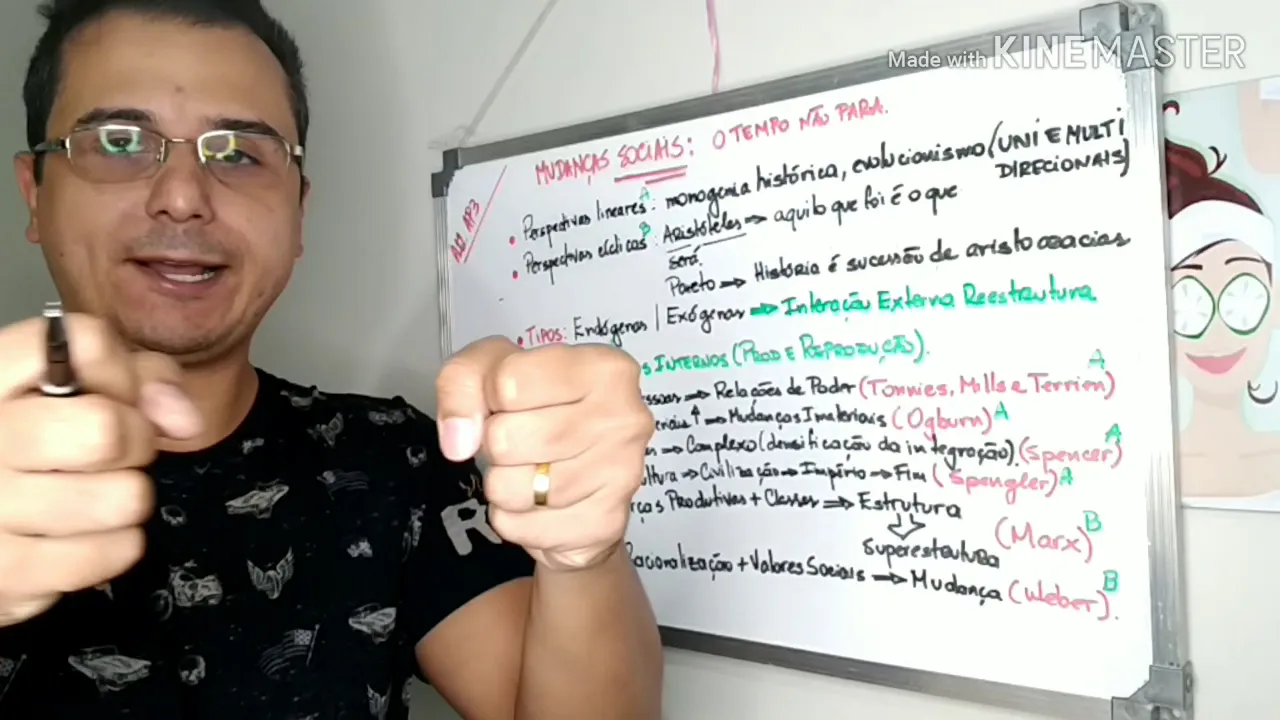 Made with KINEMASTER
MUDANÇAS SOCIAIS: O TEMPO NÃO PARA.
• Perspectivas lineares A: monogenia histórica, evolucionismo (UNI E MULTI
DIRECIONAIS)
• Perspectivas cíclicas B: Aristóteles → aquilo que foi é o que
será.
Pareto → História é sucessão de aristocracias
• TIPOS: Endógenas | Exógenas → Interação Externa Reestrutura
S INTERNOS (PROD E REPRODUÇÃO).
ssoas → Relações de Poder (Tonnies, Mills e Terrien) A
eriais ↑ → Mudanças Imateriais (Ogburn) A
→ Complexo (densificação da integração). (Spencer) A
ltura → Civilização → Império → Fim (Spengler) A
rças Produtivas + Classes → Estrutura
Superestrutura (Marx) B
Racionalização + Valores Sociais → Mudança (Weber). B
R